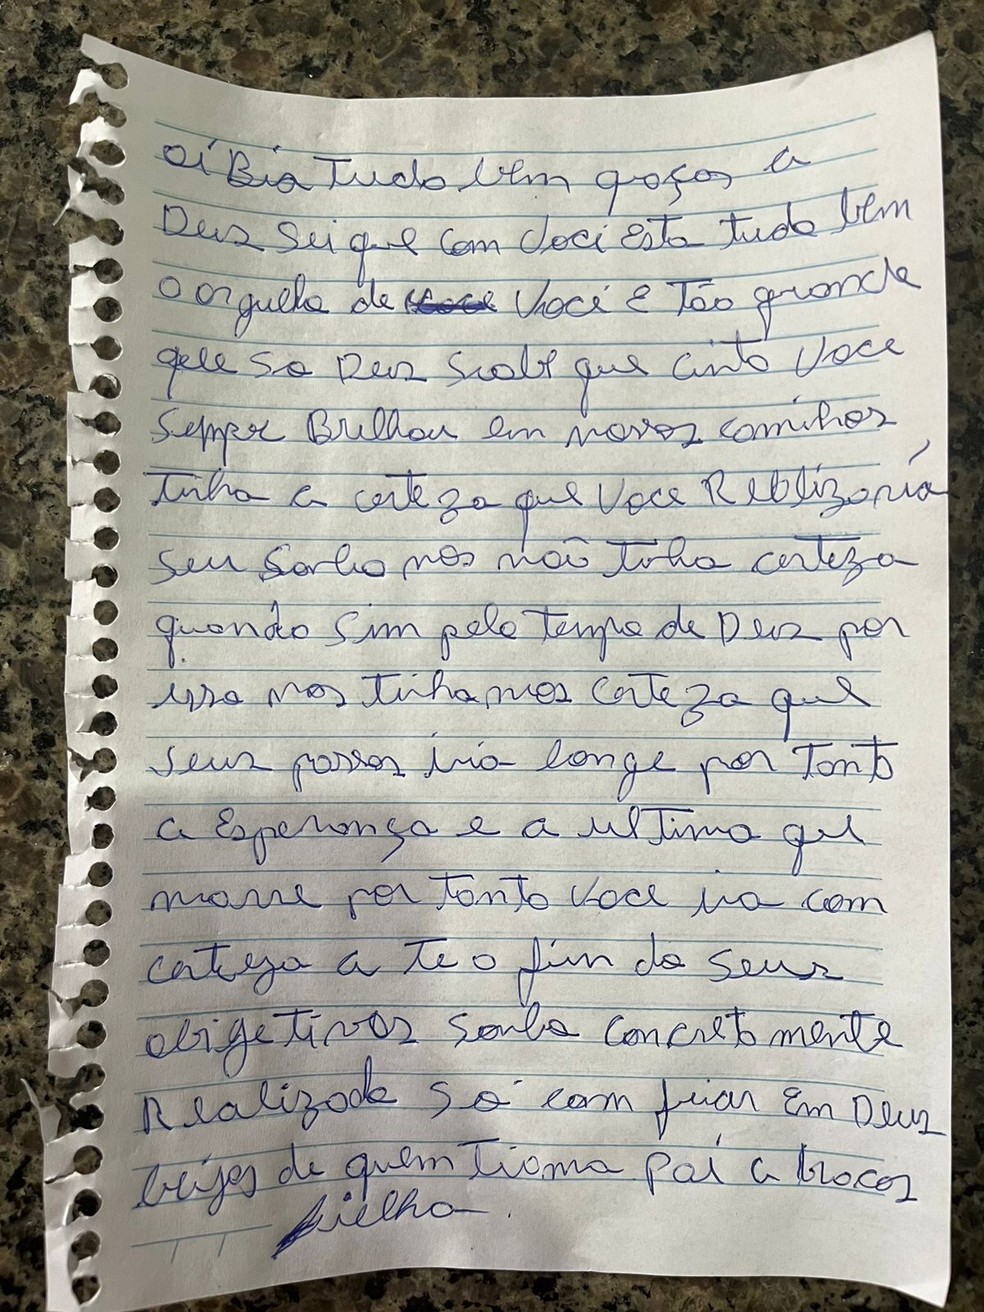 Oí Bia Tudo bem graças a
Deus sei que com você esta tudo bem
O orgulho de você é Tão grande
que so Deus sabe que cinto voce
semper Brilhou em nosos caminhos
tinha a certeza que voce Realizaria
seu sonho nos não tinha certeza
quando sim pelo tempo de Deus por
isso nos tinhamos certeza que
seus passos iria longe por tonto
a Esperança e a ultima que
morre por tonto voce ira com
certeza a te o fin do seus
obigetivos sonho concretomente
Realizado só com fiar Em Deus
beijos de quem tiama pai a bracos
fielha.